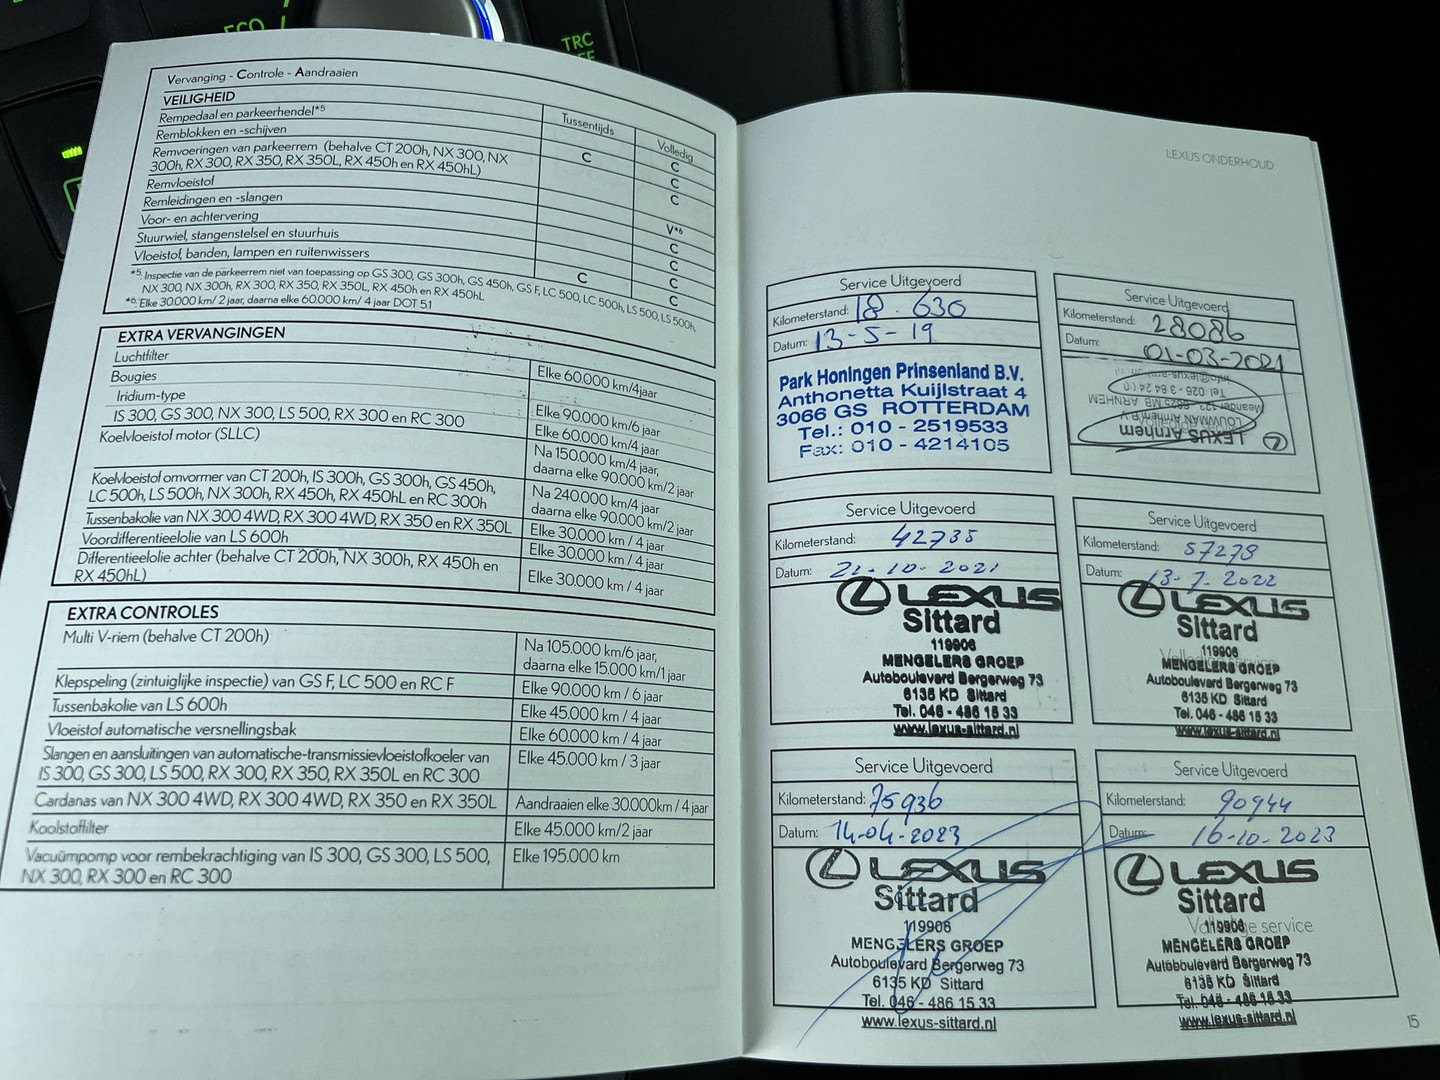 ECO
TRC
Vervanging - Controle - Aandraaien
VEILIGHEID
Tussentijds
Volledig
Rempedaal en parkeerhendel*5
C
Remblokken en -schijven
C
C
Remvoeringen van parkeerrem (behalve CT 200h, NX 300, NX
300h, RX 300, RX 350, RX 350L, RX 450h en RX 450hL)
C
Remvloeistof
V*6
Remleidingen en -slangen
C
Voor- en achtervering
C
Stuurwiel, stangenstelsel en stuurhuis
C
Vloeistof, banden, lampen en ruitenwissers
C
C
*5: Inspectie van de parkeerrem niet van toepassing op GS 300, GS 300h, GS 450h, GS F, LC 500, LC 500h, LS 500, LS 500h,
NX 300, NX 300h, RX 300, RX 350, RX 350L, RX 450h en RX 450hL
*6: Elke 30.000 km/ 2 jaar, daarna elke 60.000 km/ 4 jaar DOT 5.1
EXTRA VERVANGINGEN
Luchtfilter
Elke 60.000 km/4jaar
Bougies
Iridium-type
Elke 90.000 km/6 jaar
IS 300, GS 300, NX 300, LS 500, RX 300 en RC 300
Elke 60.000 km/4 jaar
Koelvloeistof motor (SLLC)
Na 150.000 km/4 jaar,
daarna elke 90.000 km/2 jaar
Koelvloeistof omvormer van CT 200h, IS 300h, GS 300h, GS 450h,
LC 500h, LS 500h, NX 300h, RX 450h, RX 450hL en RC 300h
Na 240.000 km/4 jaar
daarna elke 90.000 km/2 jaar
Tussenbakolie van NX 300 4WD, RX 300 4WD, RX 350 en RX 350L
Elke 30.000 km / 4 jaar
Voordifferentieelolie van LS 600h
Elke 30.000 km / 4 jaar
Differentieelolie achter (behalve CT 200h, NX 300h, RX 450h en
RX 450hL)
Elke 30.000 km / 4 jaar
EXTRA CONTROLES
Multi V-riem (behalve CT 200h)
Na 105.000 km/6 jaar,
daarna elke 15.000 km/1 jaar
Klepspeling (zintuiglijke inspectie) van GS F, LC 500 en RC F
Elke 90.000 km / 6 jaar
Tussenbakolie van LS 600h
Elke 45.000 km / 4 jaar
Vloeistof automatische versnellingsbak
Elke 60.000 km / 4 jaar
Slangen en aansluitingen van automatische-transmissievloeistofkoeler van
IS 300, GS 300, LS 500, RX 300, RX 350, RX 350L en RC 300
Elke 45.000 km / 3 jaar
Cardanas van NX 300 4WD, RX 300 4WD, RX 350 en RX 350L
Aandraaien elke 30.000km / 4 jaar
Koolstoffilter
Elke 45.000 km/2 jaar
Vacuümpomp voor rembekrachtiging van IS 300, GS 300, LS 500,
NX 300, RX 300 en RC 300
Elke 195.000 km
LEXUS ONDERHOUD
Service Uitgevoerd
Kilometerstand: 18.630
Datum: 13-5-19
Park Honingen Prinsenland B.V.
Anthonetta Kuijlstraat 4
3066 GS ROTTERDAM
Tel.: 010 - 2519533
Fax: 010 - 4214105
Service Uitgevoerd
Kilometerstand: 28086
Datum: 01-03-2021
LEXUS Arnhem
LOUWMAN Arnhem B.V.
Meander 123 6825 MB ARNHEM
Service Uitgevoerd
Kilometerstand: 42735
Datum: 21-10-2021
LEXUS
Sittard
119906
MENGELERS GROEP
Autoboulevard Bergerweg 73
6135 KD Sittard
Tel. 046 - 486 15 33
www.lexus-sittard.nl
Service Uitgevoerd
Kilometerstand: 57279
Datum: 13-7-2022
LEXUS
Sittard
119906
MENGELERS GROEP
Autoboulevard Bergerweg 73
6135 KD Sittard
Tel. 046 - 486 15 33
www.lexus-sittard.nl
Service Uitgevoerd
Kilometerstand: 75936
Datum: 14-04-2023
LEXUS
Sittard
119906
MENGELERS GROEP
Autoboulevard Bergerweg 73
6135 KD Sittard
Tel. 046 - 486 15 33
www.lexus-sittard.nl
Service Uitgevoerd
Kilometerstand: 90944
Datum: 16-10-2023
LEXUS
Sittard
119906
service
MENGELERS GROEP
Autoboulevard Bergerweg 73
6135 KD Sittard
Tel. 046 - 486 15 33
www.lexus-sittard.nl
15